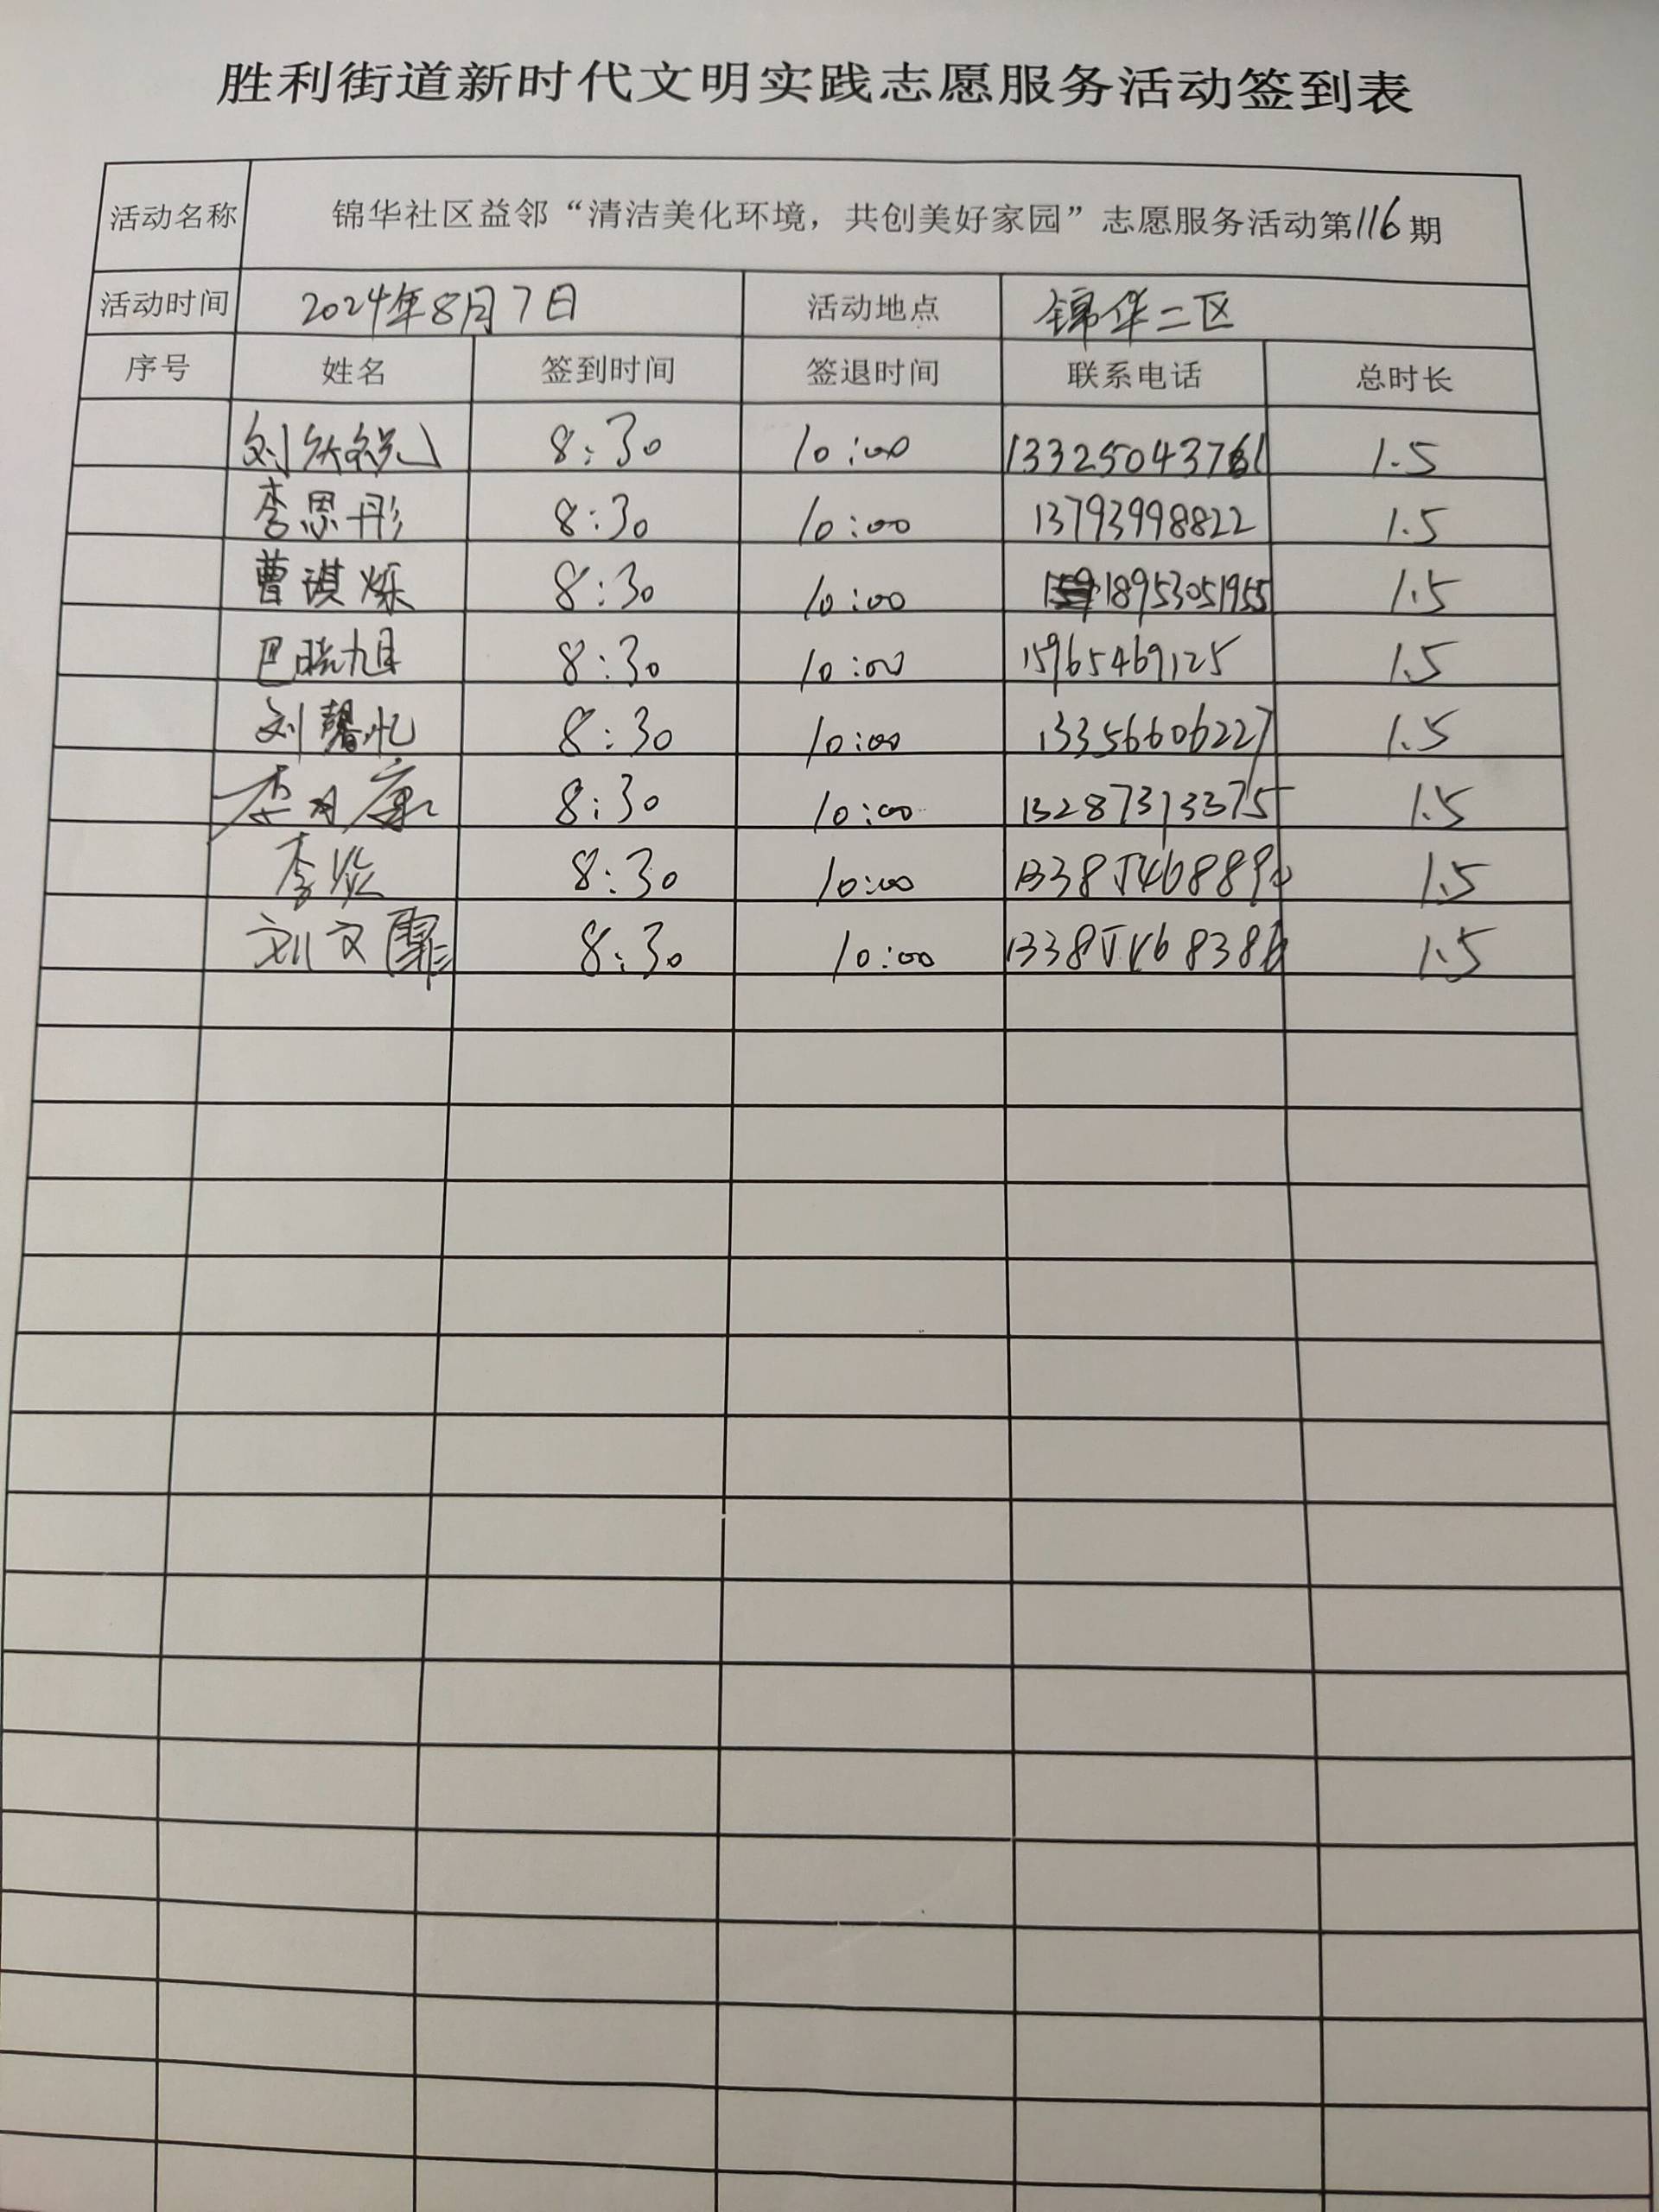 胜利街道新时代文明实践志愿服务活动签到表
活动名称 锦华社区益邻“清洁美化环境，共创美好家园”志愿服务活动第116期
活动时间 2024年8月7日 活动地点 锦华二区
序号 姓名 签到时间 签退时间 联系电话 总时长
刘 8:30 10:00 1.5
李思彤 8:30 10:00 13793998822 1.5
曹祺烁 8:30 10:00 18953051955 1.5
巴晓旭 8:30 10:00 15965469125 1.5
刘馨忆 8:30 10:00 13356606227 1.5
李 康 8:30 10:00 13287313375 1.5
李 8:30 10:00 1.5
刘文霏 8:30 10:00 1.5